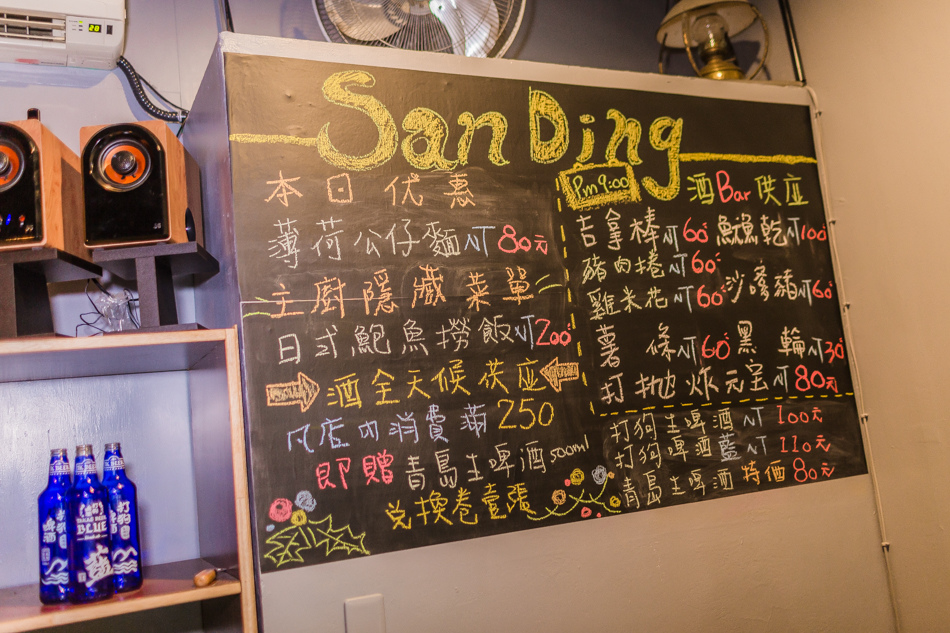 San Ding
本日优惠
薄荷公仔麵NT80元
主廚隱藏菜單
日式鮑魚撈飯NT200
酒全天候供应
凡店內消費滿250
即贈青島生啤酒500ml
兑換卷壹張
Pm 9:00 酒Bar供应
吉拿棒NT60 魷魚乾NT100
豬肉捲NT60
雞米花NT60 沙嗲豬NT60
薯條NT60 黑輪NT30
打抛炸元宝NT80元
打狗生啤酒 NT 100元
打狗啤酒藍 NT 110元
青島生啤酒 特価 80元
28
打狗啤酒
BLUE
藍